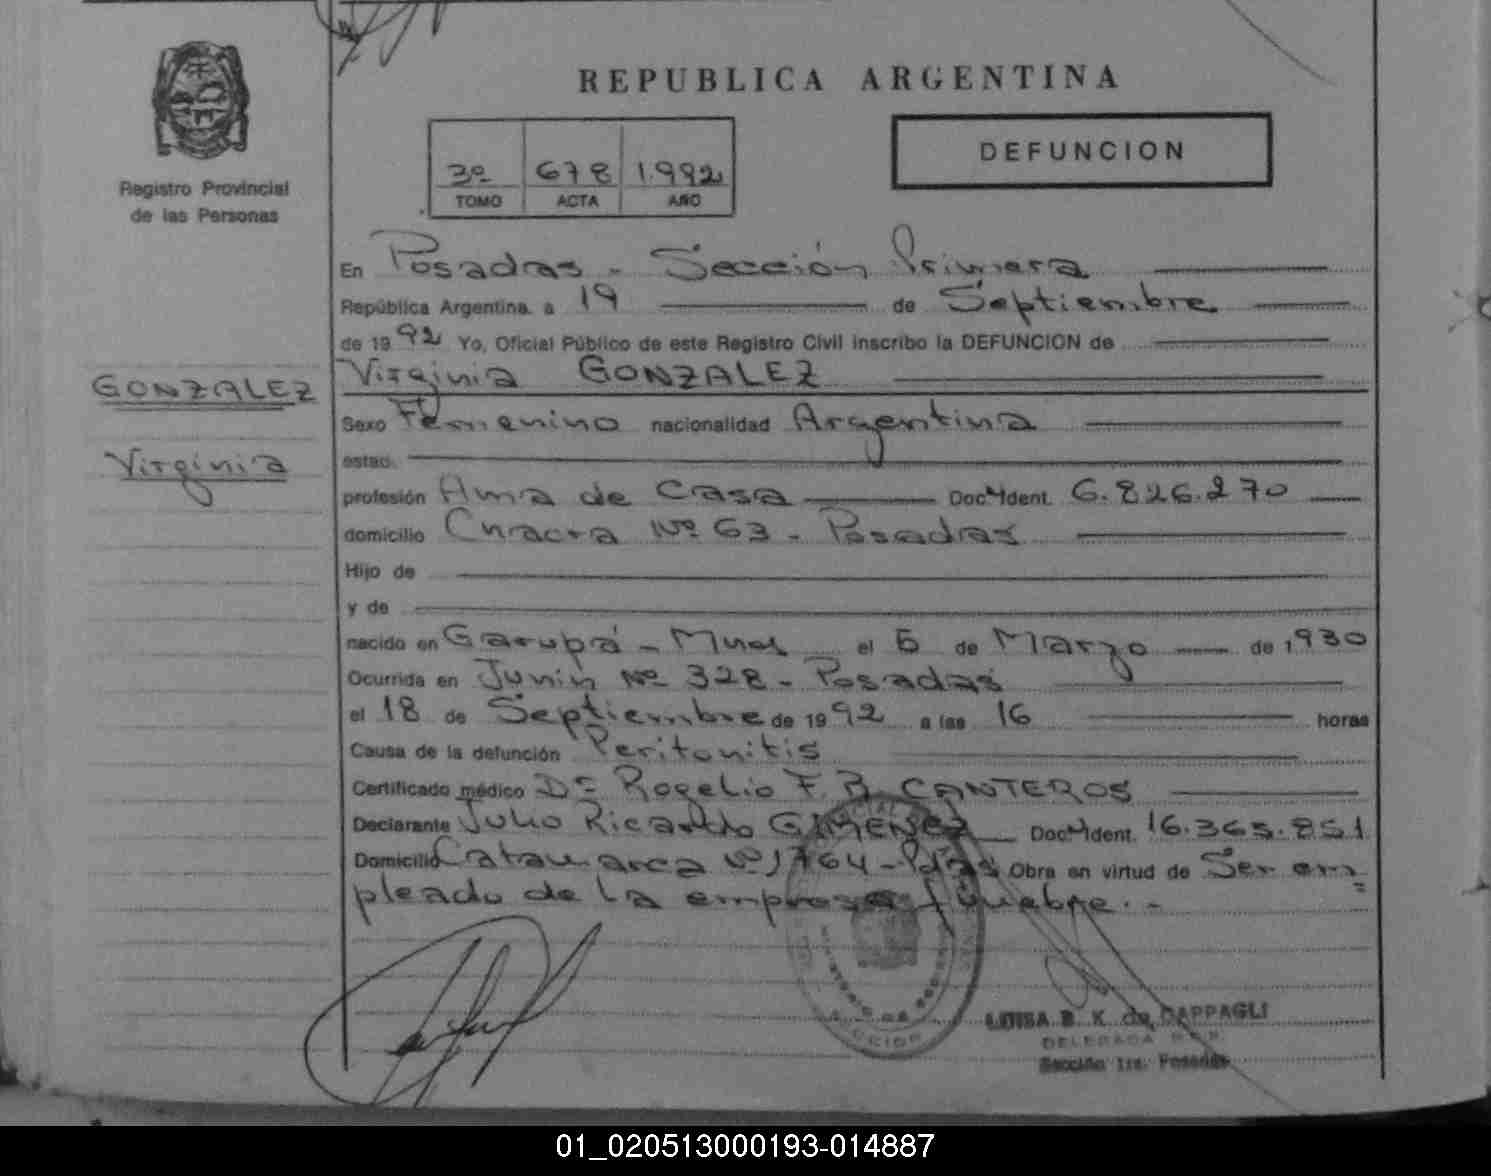 REPUBLICA ARGENTINA
DEFUNCION
3º 678 1.992
TOMO ACTA AÑO
Registro Provincial
de las Personas
En Posadas - Sección Primera
República Argentina, a 19 de Septiembre
de 19 92 Yo, Oficial Público de este Registro Civil inscribo la DEFUNCION de
Virginia GONZALEZ
GONZALEZ
Virginia
Sexo Femenino nacionalidad Argentina
estad.
profesión Ama de Casa Doc. Ident. 6.826.270
domicilio Chacra Nº 63 - Posadas
Hijo de
y de
nacido en Garupá - Mnes el 5 de Marzo de 1930
Ocurrida en Junín Nº 328 - Posadas
el 18 de Septiembre de 19 92 a las 16 horas
Causa de la defunción Peritonitis
Certificado médico Dr Rogelio F. B. CANTEROS
Declarante Julio Ricardo GIMENEZ Doc. Ident. 16.365.851
Domicilio Catamarca Nº 1764 - Pdas Obra en virtud de Ser em=
pleado de la empresa fúnebre. -
LUISA B. K. de CAPPAGLI
DELEGADA
Sección 1ra. Posadas
01_020513000193-014887